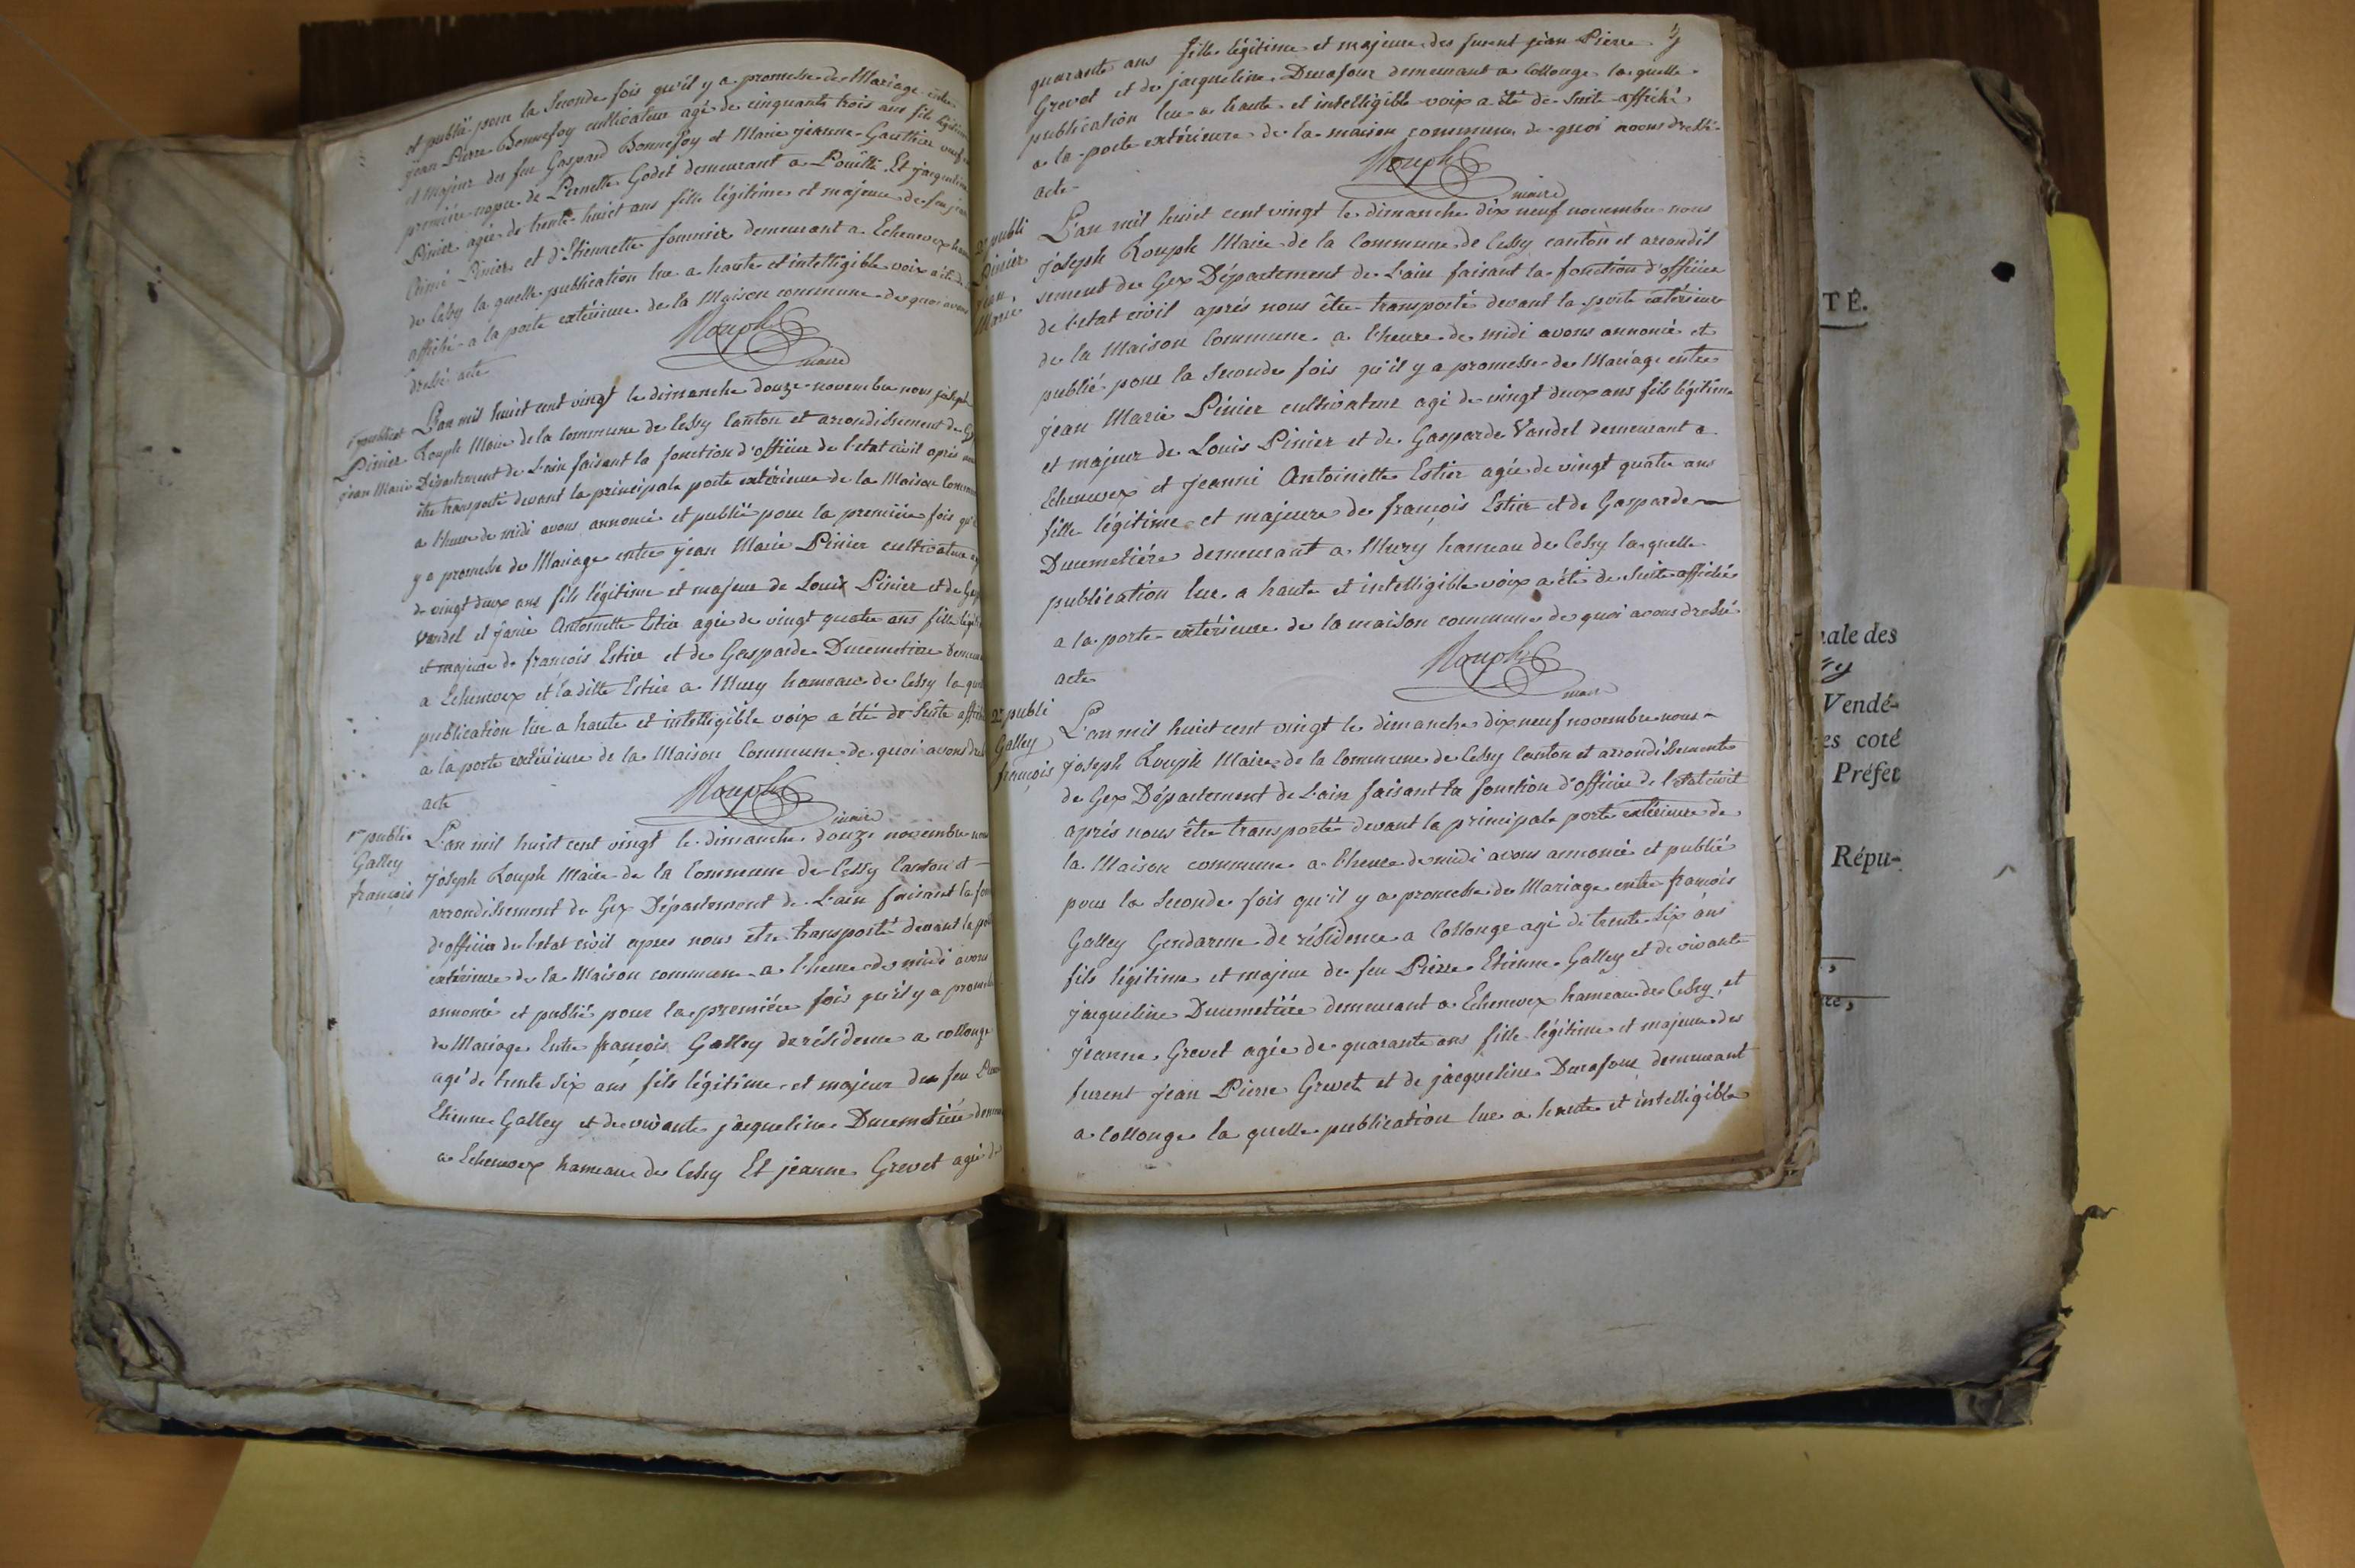 et publié pour la Seconde fois qu'il y a promesse de Mariage entre
jean Pierre Bonnefoy cultivateur agé de cinquante trois ans fils légitime
et majeur des feu Gaspard Bonnefoy et Marie jeanne Gauthier veuf en
premiére nopce de Pernette Godet demeurant a Pouilli Et jacqueline
Pinier agée de trente huict ans fille légitime et majeure de feu jean
Aimé Pinier et d'Etiennette fournier demeurant a Echenevex hameau
de Cessy la quelle publication lue a haute et intelligible voix a été de
affiché a la porte extérieure de la Maison commune de quoi avons
dressé acte
Rouph
maire
1re publicat
Pinier
jean Marie
L'an mil huict cent vingt le dimanche douze novembre nous joseph
Rouph Maire de la Commune de Cessy Canton et arrondissement de Gex
Département de L'ain faisant la fonction d'officier de l'etat civil après nous
être transporté devant la principale porte extérieure de la Maison Commune
a l'heure de midi avons annoncé et publié pour la première fois qu'il
y a promesse de Mariage entre jean Marie Pinier cultivateur agé
de vingt deux ans fils légitime et majeur de Louis Pinier et de Gasp
Vandel et janie Antoinette Estier agée de vingt quatre ans fille légit
et majeure de francois Estier et de Gasparde Ducimetiere Demeu
a Echenevex et la ditte Estier a Mury hameau de Cessy la quel
publication lue a haute et intelligible voix a été de Suite affich
a la porte extérieure de la Maison Commune de quoi avons dres
acte
Rouph
maire
1re public
Galley
francois
L'an mil huict cent vingt le dimanche douze novembre nous
joseph Rouph Maire de la Commune de Cessy Canton et
arrondissement de Gex Département de L'ain faisant la fon
d'officier de l'etat civil apres nous etre transporté devant la port
extérieure de la Maison commune a l'heure de midi avons
annoncé et publié pour la premiére fois qu'il y a promess
de Mariage Entre francois Galley de résidence a collonge
agé de trente Six ans fils légitime et majeur de feu Pierre
Etienne Galley et de vivante jacqueline Ducimetiére demeu
a Echenevex hameau de Cessy Et jeanne Grevet agée de
quarante ans fille légitime et majeure des furent jean Pierre
Grevet et de jacqueline Durafour demeurant a Collonge la quelle
publication lue a haute et intelligible voix a été de Suite affiché
a la porte extérieure de la maison commune de quoi avons dressé
acte
Rouph
maire
2e publi
Pinier
jean
Marie
L'an mil huict cent vingt le dimanche dix neuf novembre nous
joseph Rouph Maire de la Commune de Cessy canton et arrondis
sement de Gex Département de L'ain faisant la fonction d'officier
de l'etat civil aprés nous être transporté devant la porte extérieure
de la Maison Commune a l'heure de midi avons annoncé et
publié pour la Seconde fois qu'il y a promesse de Mariage entre
jean Marie Pinier cultivateur agé de vingt deux ans fils légitime
et majeur de Louis Pinier et de Gasparde Vandel demeurant a
Echenevex et jeanne Antoinette Estier agée de vingt quatre ans
fille légitime et majeure de françois Estier et de Gasparde
Ducimetiére demeurant a Mury hameau de Cessy la quelle
publication lue a haute et intelligible voix a été de Suite affichée
a la porte extérieure de la maison commune de quoi avons dressé
acte
Rouph
maire
2e publi
Galley
françois
L'an mil huict cent vingt le dimanche dix neuf novembre nous
joseph Rouph Maire de la Commune de Cessy Canton et arrondissement
de Gex Département de L'ain faisant la fonction d'officier de l'etat civil
aprés nous être transporté devant la principale porte extérieure de
la Maison commune a l'heure de midi avons annoncé et publié
pour la Seconde fois qu'il y a promesse de Mariage entre francois
Galley Gendarme de résidence a Collonge agé de trente Six ans
fils légitime et majeur de feu Pierre Etienne Galley et de vivante
jacqueline Ducimetiére demeurant a Echenevex hameau de Cessy et
jeanne Grevet agée de quarante ans fille légitime et majeure des
furent jean Pierre Grevet et de jacqueline Durafour demeurant
a Collonge la quelle publication lue a haute et intelligible
TÉ.
nale des
Vendé-
es coté
Préfet
Répu-